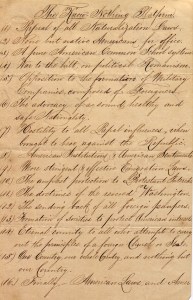 The Know Nothing Platform
(1) Repeal of all Naturalization Laws.
(2) None but native Americans for office.
(3) A pure American Common School system
(4) War to the hilt, on political Romanism.
(5) Opposition to the formation of Military
Companies, composed of Foreigners.
(6) The advocacy of a sound, healthy and
safe Nationality.
(7) Hostility to all Papal influences, when
brought to bear against the Republic.
(8) American Institutions & American Sentiments
(9) More stringent & effective Emigration Laws
(10) The amplest protection to Protestant Interests
(11) The doctrines of the revered Washington.
(12) The sending back of all foreign paupers.
(13) Formation of societies to protect American interests
(14) Eternal enmity to all who attempt to carry
out the principles of a foreign Church or State
(15) Our Country, our whole Country, and nothing but
our Country.
(16) Finally,— American Laws, and